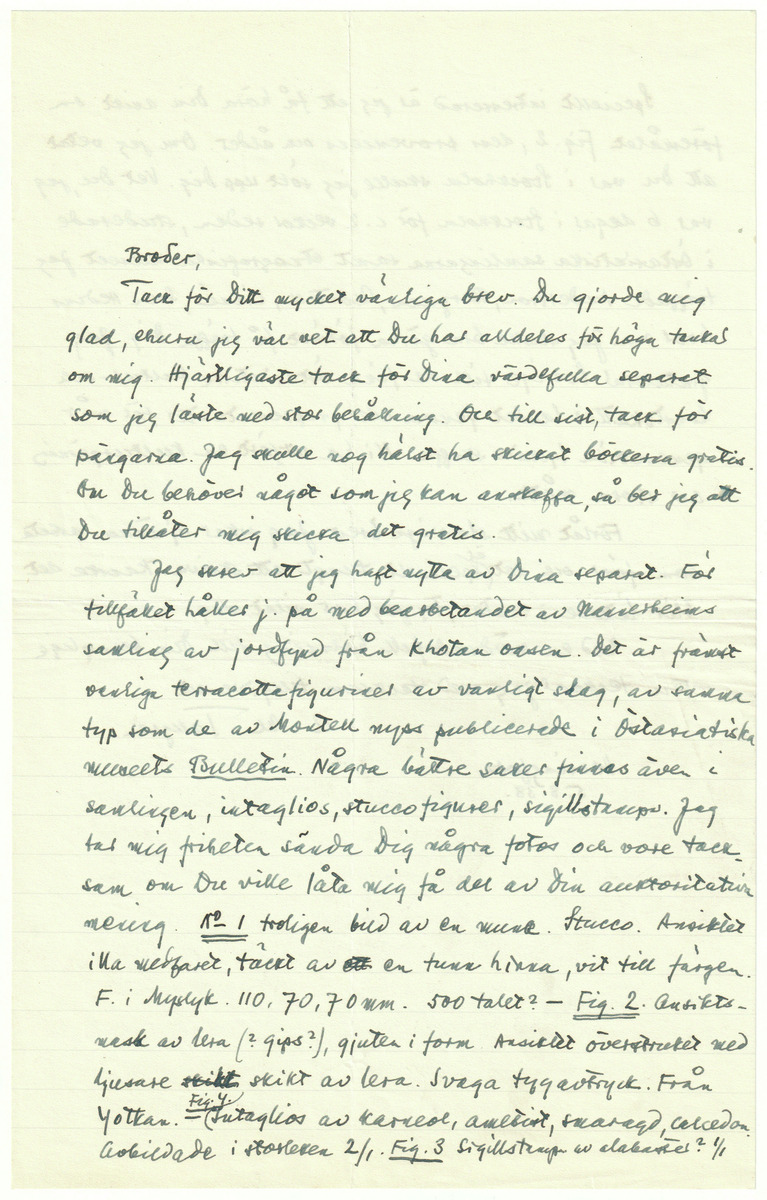 Broder,
Tack för Ditt mycket vänliga brev. Du gjorde mig
glad, ehuru jag väl vet att Du har alldeles för höga tankar
om mig. Hjärtligaste tack för Dina värdefulla separat
som jag läste med stor behållning. Och till sist, tack för
pängarna. Jag skulle nog hälst ha skickat böckerna gratis.
Om Du behöver något som jag kan anskaffa, så ber jag att
Du tillåter mig skicka det gratis.
Jag skrev att jag haft nytta av Dina separat. För
tillfället håller j. på med bearbetandet av Mannerheims
samling av jordfynd från Khotan oasen. Det är främst
vanliga terracottafiguriner av vanligt slag, av samma
typ som de av Montell nyss publicerade i Östasiatiska
museets Bulletin. Några bättre saker finnas även i
samlingen, intaglios, stuccofigurer, sigillstampar. Jag
tar mig friheten sända Dig några fotos och vore tack-
sam om Du ville låta mig få del av Din auktoritativa
mening. No 1 troligen bild av en munk. Stucco. Ansiktet
illa medfaret, täckt av en tunn hinna, vit till färgen.
F. i Myslyk. 110, 70, 70 mm. 500 talet? — Fig. 2. Ansikts-
mask av lera (? gips?), gjuten i form. Ansiktet överstruket med
ljusare skikt av lera. Svaga tygavtryck. Från
Yotkan. — Fig. 4. (Intaglios av karneol, ametist, smaragd, calcedon.
Avbildade i storleken 2/1. Fig. 3 Sigillstamp av alabaster? 1/1